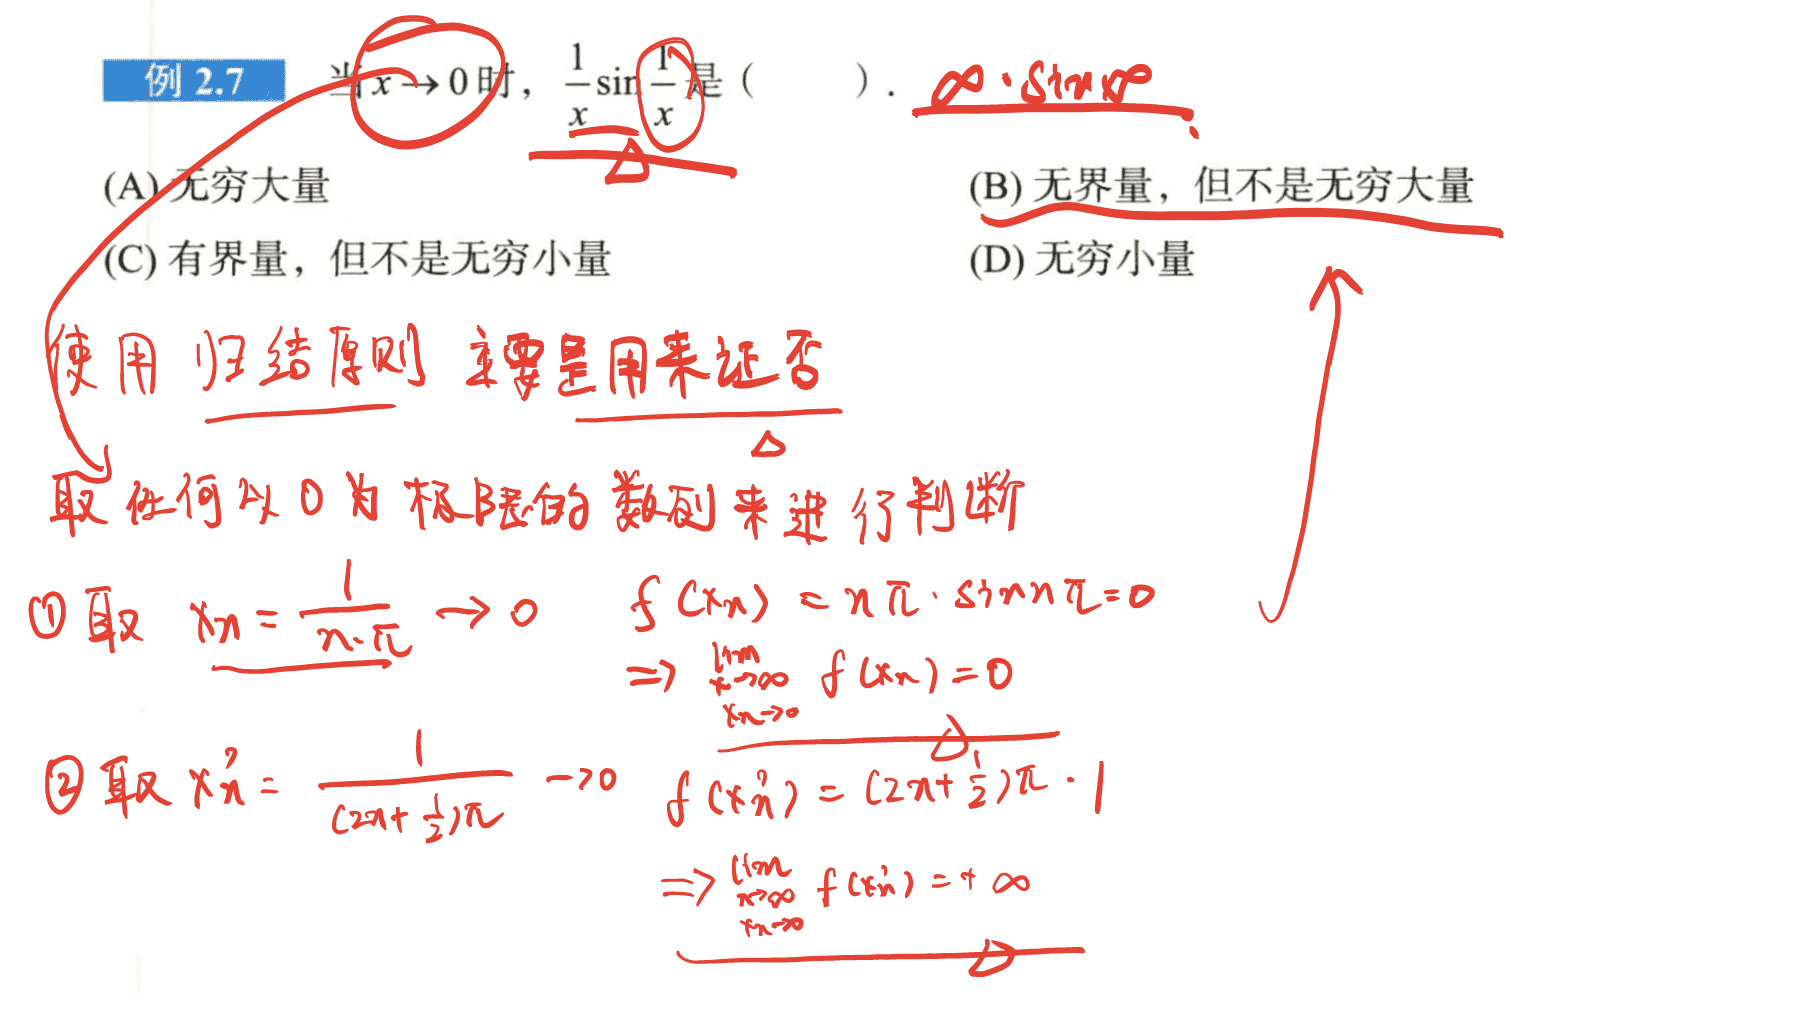 例 2.7 当 x → 0 时, 1/x sin 1/x 是 ( ). ∞ · sin ∞
(A) 无穷大量 (B) 无界量, 但不是无穷大量
(C) 有界量, 但不是无穷小量 (D) 无穷小量
使用 归结原则 主要是用来证否
取任何以 0 为极限的数列来进行判断
① 取 xn = 1/(n·π) → 0 f(xn) = nπ · sin nπ = 0
⇒ lim f(xn) = 0
x→∞
xn→0
② 取 x'n = 1/((2n+1/2)π) → 0 f(x'n) = (2n+1/2)π · 1
⇒ lim f(x'n) = +∞
n→∞
xn→0